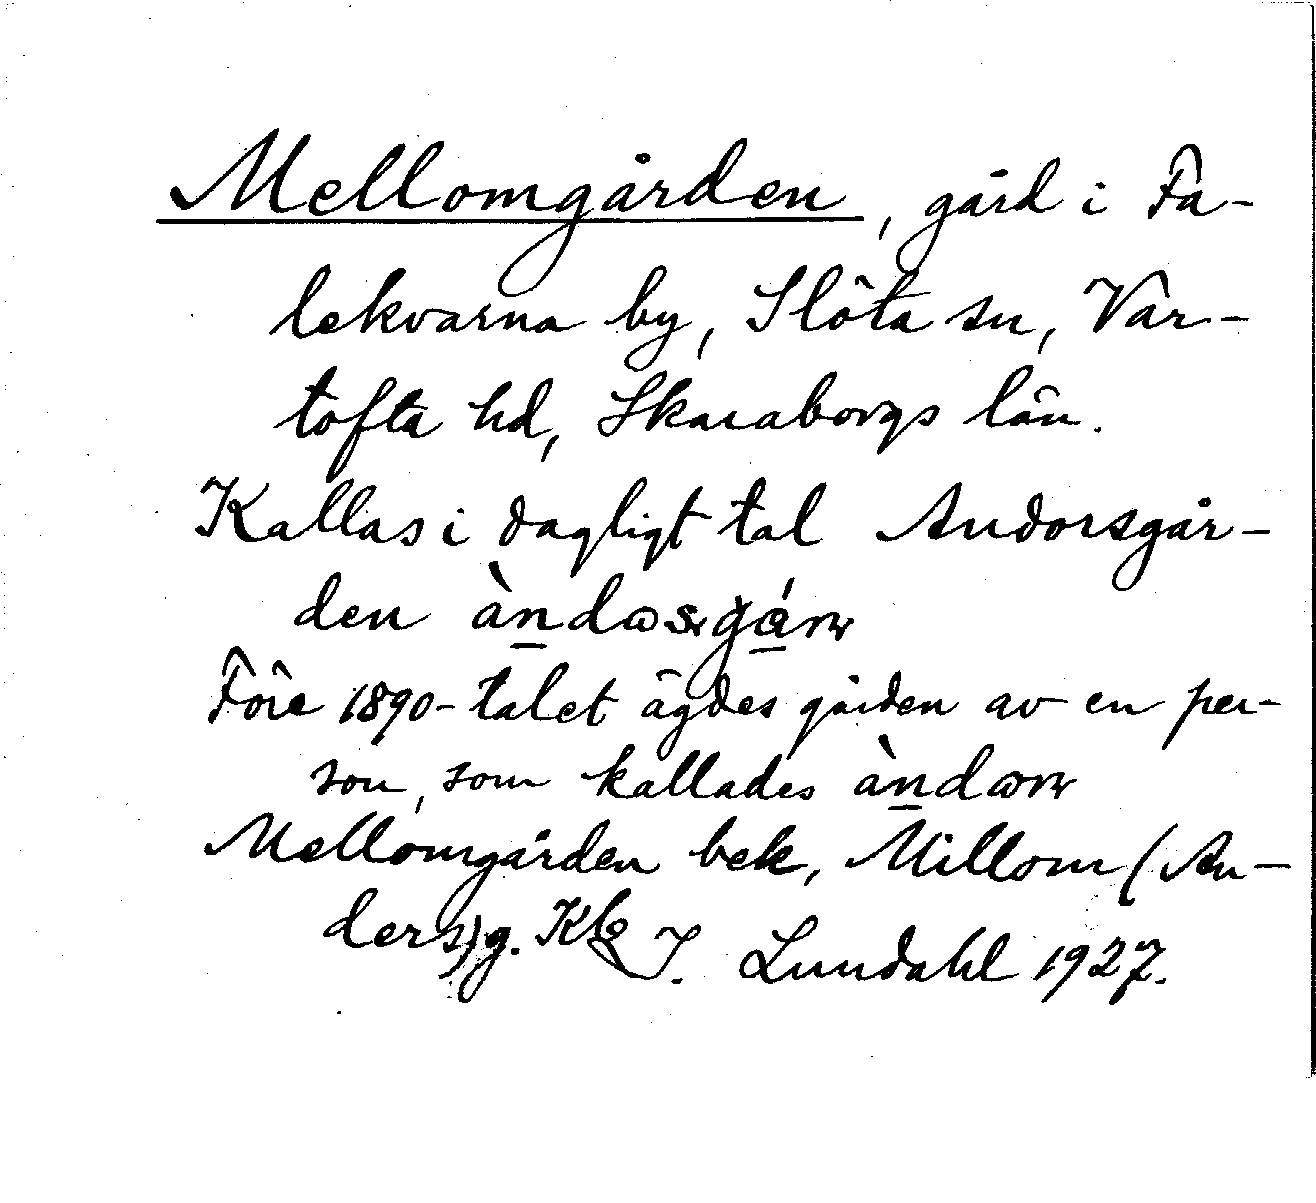 Mellomgården, gård i Fa-
lekvarna by, Slöta sn, Var-
tofta hd, Skaraborgs län.
Kallas i dagligt tal Andorsgår-
den àndɷsgán
Före 1890-talet ägdes gården av en per-
son, som kallades àndɷn
Mellomgården bek, Millom (An-
ders)g. Kbg I. Lundahl 1927.